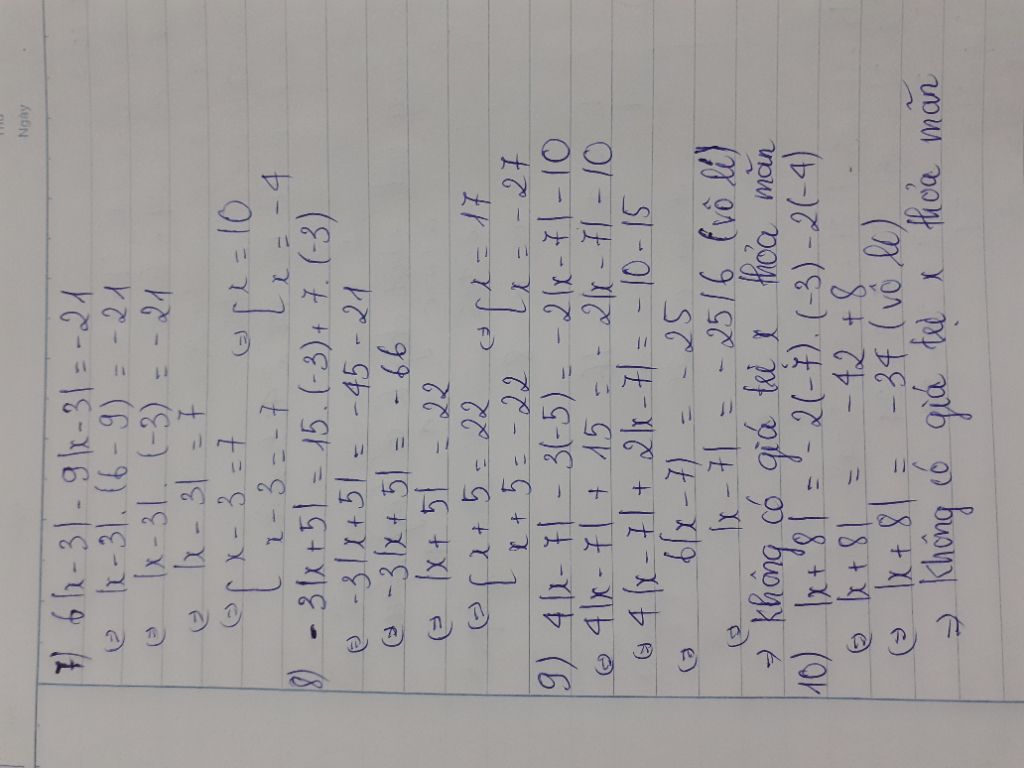 Thứ
Ngày
7) 6|x-3| - 9|x-3| = -21
⇔ |x-3|.(6-9) = -21
⇔ |x-3|.(-3) = -21
⇔ |x-3| = 7
⇔ [x-3=7 ⇔ [x=10
x-3=-7 x=-4
8) -3|x+5| = 15.(-3)+7.(-3)
⇔ -3|x+5| = -45-21
⇔ -3|x+5| = -66
⇔ |x+5| = 22
⇔ [x+5=22 ⇔ [x=17
x+5=-22 x=-27
9) 4|x-7| - 3(-5) = -2|x-7| - 10
⇔ 4|x-7| + 15 = -2|x-7| - 10
⇔ 4|x-7| + 2|x-7| = -10-15
⇔ 6|x-7) = -25
⇔ |x-7| = -25/6 (vô lí)
⇒ Không có giá trị x thỏa mãn
10) |x+8| = -2(-7).(-3)-2(-4)
⇔ |x+8| = -42+8
⇔ |x+8| = -34 (vô lí)
⇒ Không có giá trị x thỏa mãn